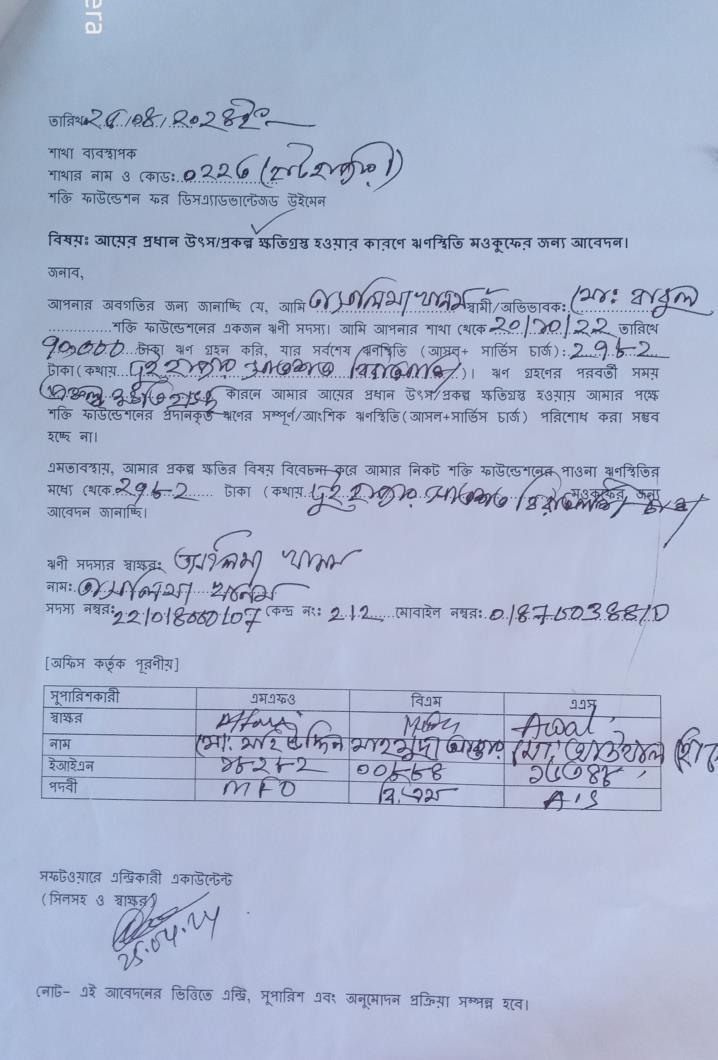 era
তারিখ: 25/08/2024ইং
শাখা ব্যবস্থাপক
শাখার নাম ও কোড: 0226 (হাটহাজারী)
শক্তি ফাউন্ডেশন ফর ডিসএ্যাডভান্টেজড উইমেন
বিষয়: আয়ের প্রধান উৎস/প্রকল্প ক্ষতিগ্রস্থ হওয়ার কারণে ঋণস্থিতি মওকুফের জন্য আবেদন।
জনাব,
আপনার অবগতির জন্য জানাচ্ছি যে, আমি স্বামী/অভিভাবক: মো: বাবুল
শক্তি ফাউন্ডেশনের একজন ঋনী সদস্য। আমি আপনার শাখা থেকে 20/10/22 তারিখে
৭০০০০ টাকা ঋণ গ্রহন করি, যার সর্বশেষ ঋনস্থিতি (আসল+ সার্ভিস চার্জ): ২৭৮২
টাকা (কথায় দুই হাজার সাতশত বিরাশি)। ঋণ গ্রহণের পরবর্তী সময়
কারনে আমার আয়ের প্রধান উৎস/প্রকল্প ক্ষতিগ্রস্থ হওয়ায় আমার পক্ষে
শক্তি ফাউন্ডেশনের প্রদানকৃত ঋণের সম্পূর্ণ/আংশিক ঋণস্থিতি (আসল+সার্ভিস চার্জ) পরিশোধ করা সম্ভব
হচ্ছে না।
এমতাবস্থায়, আমার প্রকল্প ক্ষতির বিষয় বিবেচনা করে আমার নিকট শক্তি ফাউন্ডেশনের পাওনা ঋণস্থিতির
মধ্যে থেকে ২৭৮২ টাকা (কথায় দুই হাজার সাতশত বিরাশি) মওকুফের জন্য
আবেদন জানাচ্ছি।
ঋনী সদস্যর স্বাক্ষর:
নাম:
সদস্য নম্বর: 221018000107 কেন্দ্র নং: 212 মোবাইল নম্বর:
[অফিস কর্তৃক পূরনীয়]
সুপারিশকারী এমএফও বিএম এএস
স্বাক্ষর Awal
নাম মো: মাহমুদা আক্তার মো: আউয়াল
ইআইএন
পদবী MFO বি.এম A.S
সফটওয়্যারে এন্ট্রিকারী একাউন্টেন্ট
(সিলসহ ও স্বাক্ষর)
নোট- এই আবেদনের ভিত্তিতে এন্ট্রি, সুপারিশ এবং অনুমোদন প্রক্রিয়া সম্পন্ন হবে।